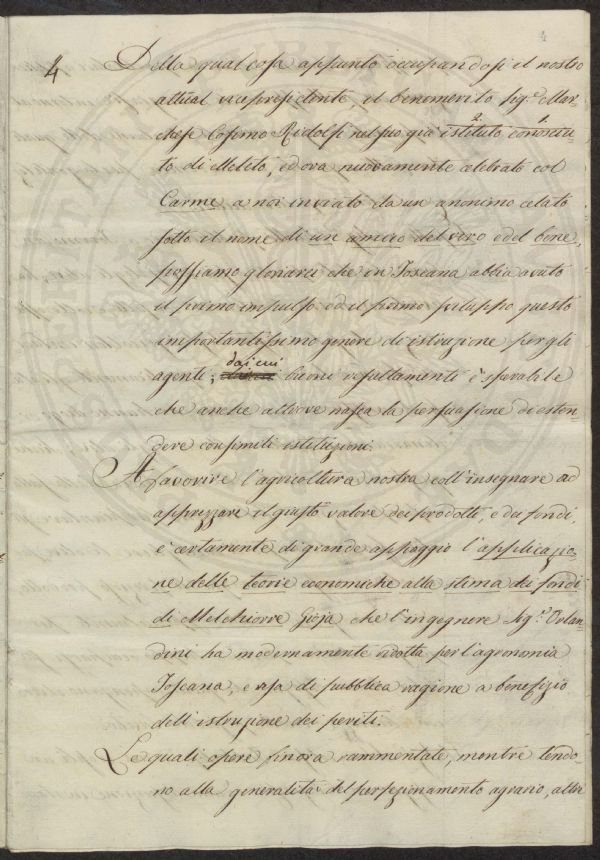 4
4
Della qual cosa appunto occupandosi il nostro
attual vicepresidente, il benemerito Sig.e Mar=
chese Cosimo Ridolfi nel suo già istituto conosciu=
2. 1.
to di Meleto, ed ora nuovamente celebrato col
Carme a noi inviato da un anonimo celato
sotto il nome di un amico del vero e del bene,
possiamo gloriarci che in Toscana abbia avuto
il primo impulso ed il primo sviluppo questo
importantissimo genere di istruzione per gli
dai cui
agenti; buoni resultamenti è sperabile
che anche altrove nasca la persuasione di esten=
dere consimili istituzioni.
A favorire l'agricoltura nostra coll'insegnare ad
apprezzare il giusto valore dei prodotti, e dei fondi,
è certamente di grande appoggio l'applicazio=
ne delle teorie economiche alla stima dei fondi
di Melchiorre Gioja che l'ingegnere Sig.e Orlan=
dini ha modernamente ridotta per l'agronomia
Toscana, e resa di pubblica ragione a benefizio
dell'istruzione dei periti.
Le quali opere finora rammentate, mentre tendo=
no alla generalità del perfezionamento agrario, altre